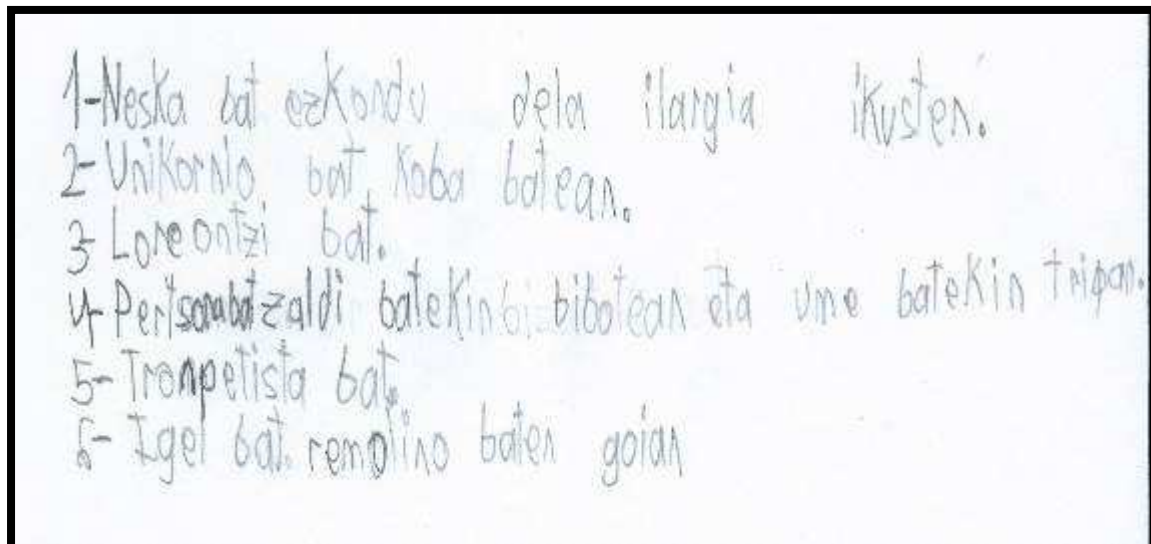 1-Neska bat ezkondu dela ilargia ikusten.
2-Unikornio bat koba batean.
3-Loreontzi bat.
4-Pertsona bat zaldi batekin bibotean eta ume batekin tripan.
5-Tronpetista bat.
6-Igel bat remolino baten goian